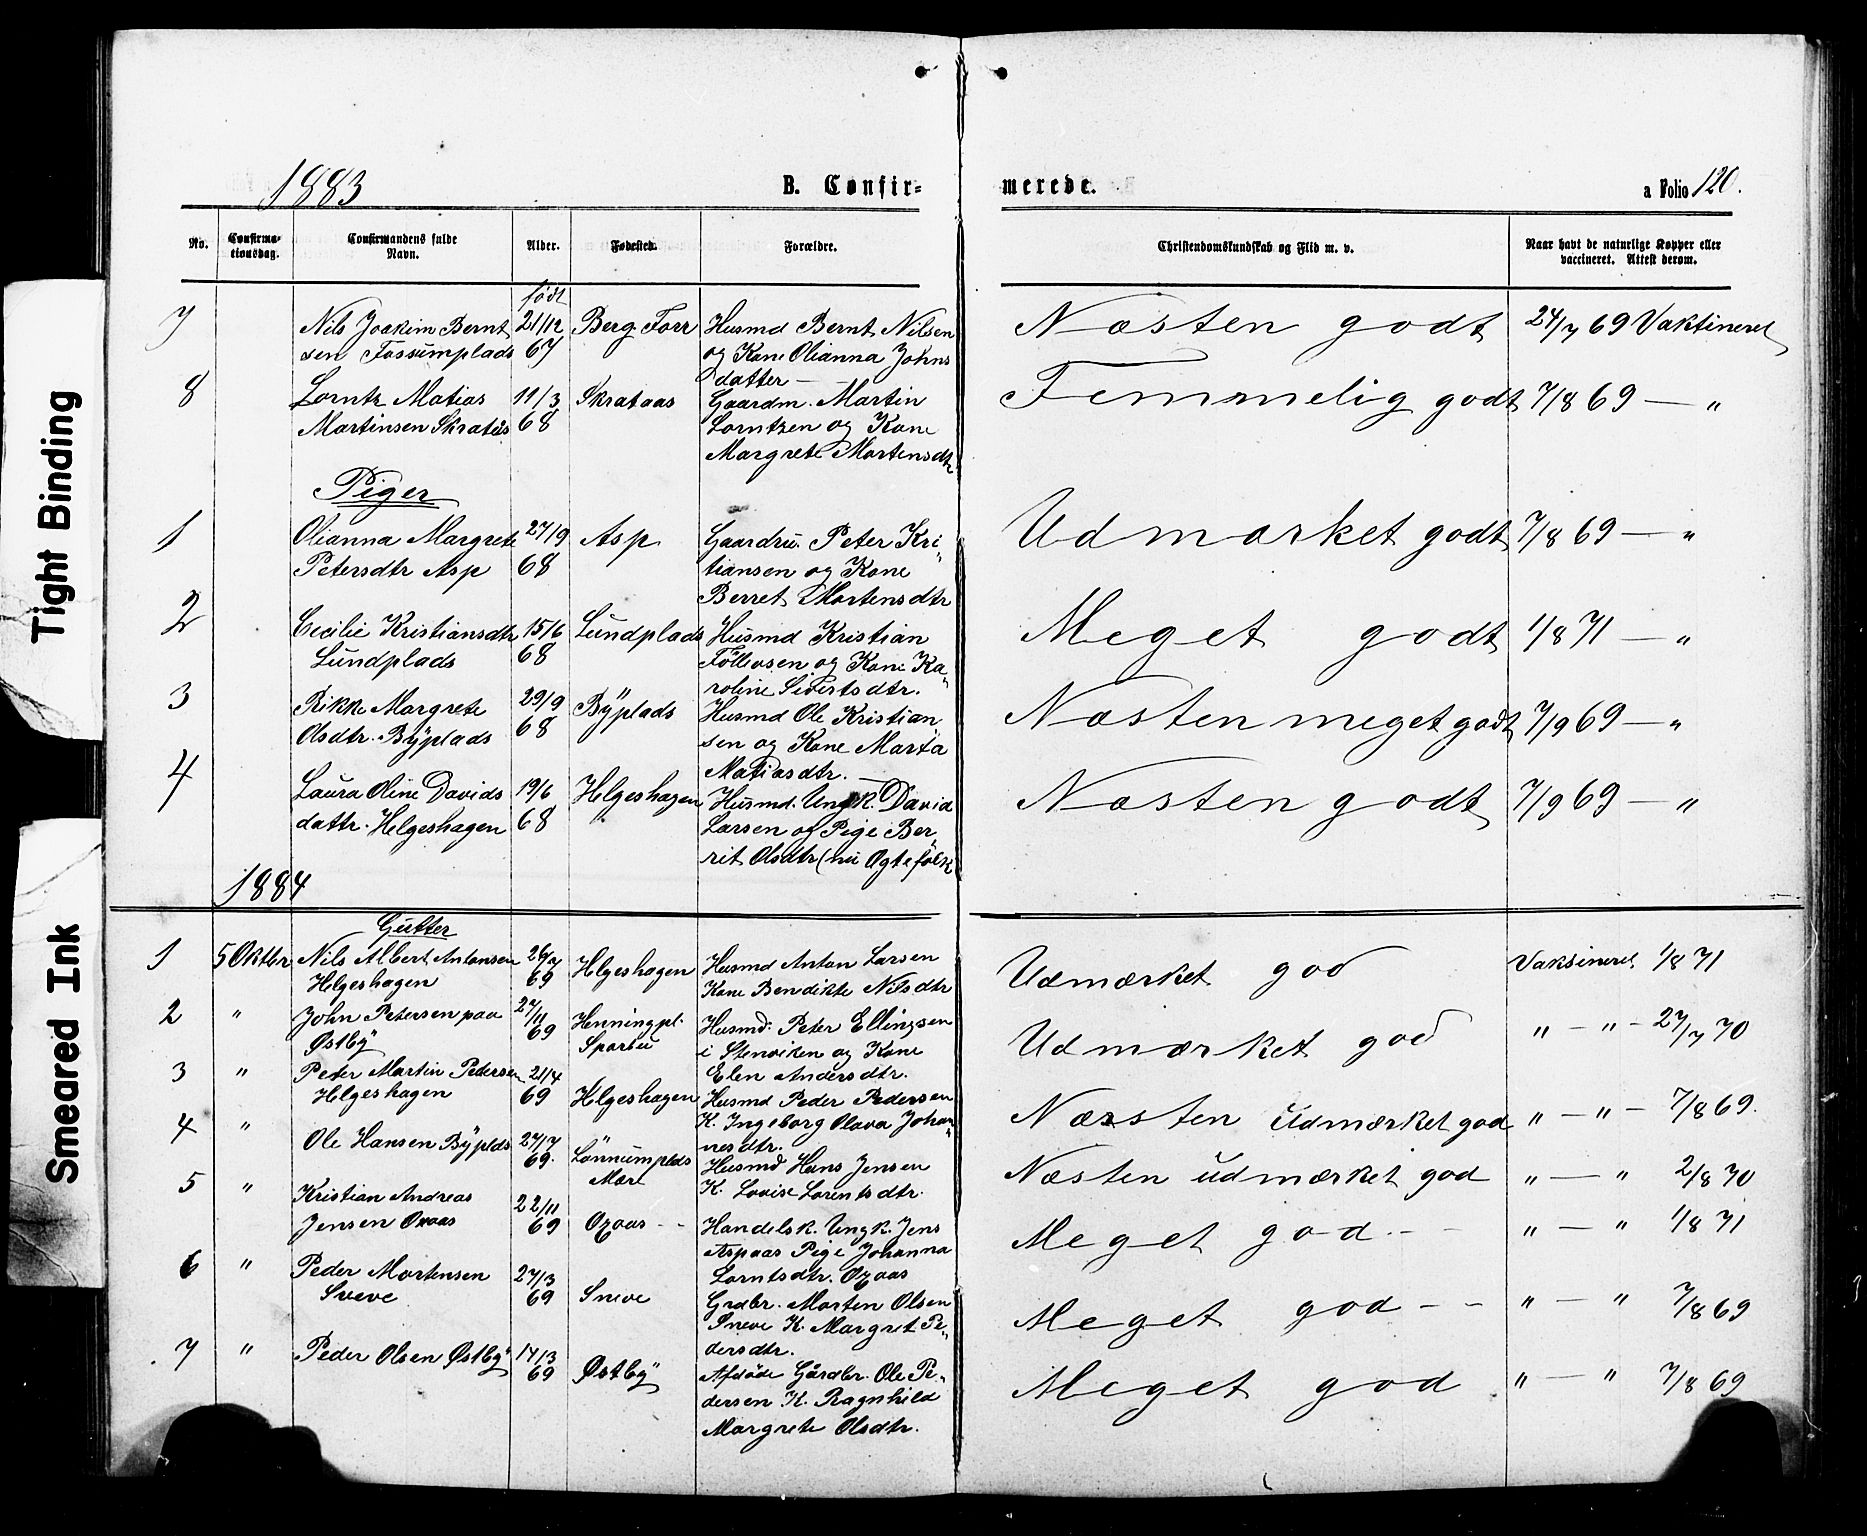 Tight Binding
Smeared Ink
1883
B. Confir-
merede.
a Folio 120.
No.
Confirma-
tionsdag.
Confirmandens fulde
Navn.
Alder.
Fødested.
Forældre.
Christendomskundskab og Flid m. v.
Naar havt de naturlige Kopper eller
vaccineret. Attest derom.
født
7 Nils Joakim Bernt 21/12 Berg Forr Husmd Bernt Nilsen Næsten godt 24/7 69 Vaktineret
sen Fossumplads 67 og Kone Olianna Johns
datter —
8 Lorntz Matias 11/3 Skrataas Gaardm. Martin Temmelig godt 7/8 69 — "
Martinsen Skrataas 68 Lorntzen og Kone
Margrete Mortensdtr
Piger
1 Olianna Margrete 27/9 Asp Gaardru. Peter Kri Udmærket godt 7/8 69 — "
Petersdtr Asp 68 tiansen og Kone
Berret Mortensdtr
2 Cecilie Kristiansdtr 15/6 Lundplads Husmd Kristian Meget godt 1/8 71 — "
Lundplads 68 og Kone Ka-
roline Sivertsdtr.
3 Rikke Margrete 29/9 Byplads Husmd Ole Kristian Næsten meget godt 7/9 69 — "
Olsdtr. Byplads 68 sen og Kone Marta
Matiasdtr. —
4 Laura Oline Davids 19/6 Helgeshagen Husmd. Ungk. David Næsten godt 7/9 69 — "
dattr. Helgeshagen 68 Larsen og Pige Ber
rit Olsdtr (nu Ogtefolk
1884
Gutter
1 5 Oktbr Nils Albert Antonsen 26/7 Helgeshagen Husmd Anton Larsen Udmærket god Vaksineret 1/8 71
Helgeshagen 69 Kone Bendikte Nilsdtr
2 " John Petersen paa 27/11 Henningpl. Husmd. Peter Ellingsen Udmærket god " — " — 27/7 70
Østby 69 Sparbu i Stenviken og Kone
Elen Andersdtr.
3 " Peter Martin Pedersen 21/4 Helgeshagen Husmd Peder Pedersen Næsten udmærket god " — " — 7/8 69.
Helgeshagen 69 K. Ingeborg Olava Johan-
nesdtr.
4 " Ole Hansen Byplds 27/7 Lønnumplds Husmd Hans Jensen Næsten udmærket god " — " 2/8 70
69. Mære K. Lovise Lorentsdtr.
5 " Kristian Andreas 22/11 Oxaas - - Handelsk. Ungk. Jens Meget god - - " — " 1/8 71
Jensen Oxaas 69 Aspaas Pige Johanna
Lorntsdtr. Oxaas
6 " Peder Mortensen 27/3 Sneve Grdbr. Morten Olsen Meget god - - " — " 7/8 69
Sveve 69 Sneve K. Margret Pe-
dersdtr.
7 " Peder Olsen Østby 17/3 Østby Afdøde Gårdbr. Ole Pe- Meget god " — " 7/8 69
69 dersen K. Ragnhild
Margrete Olsdtr.